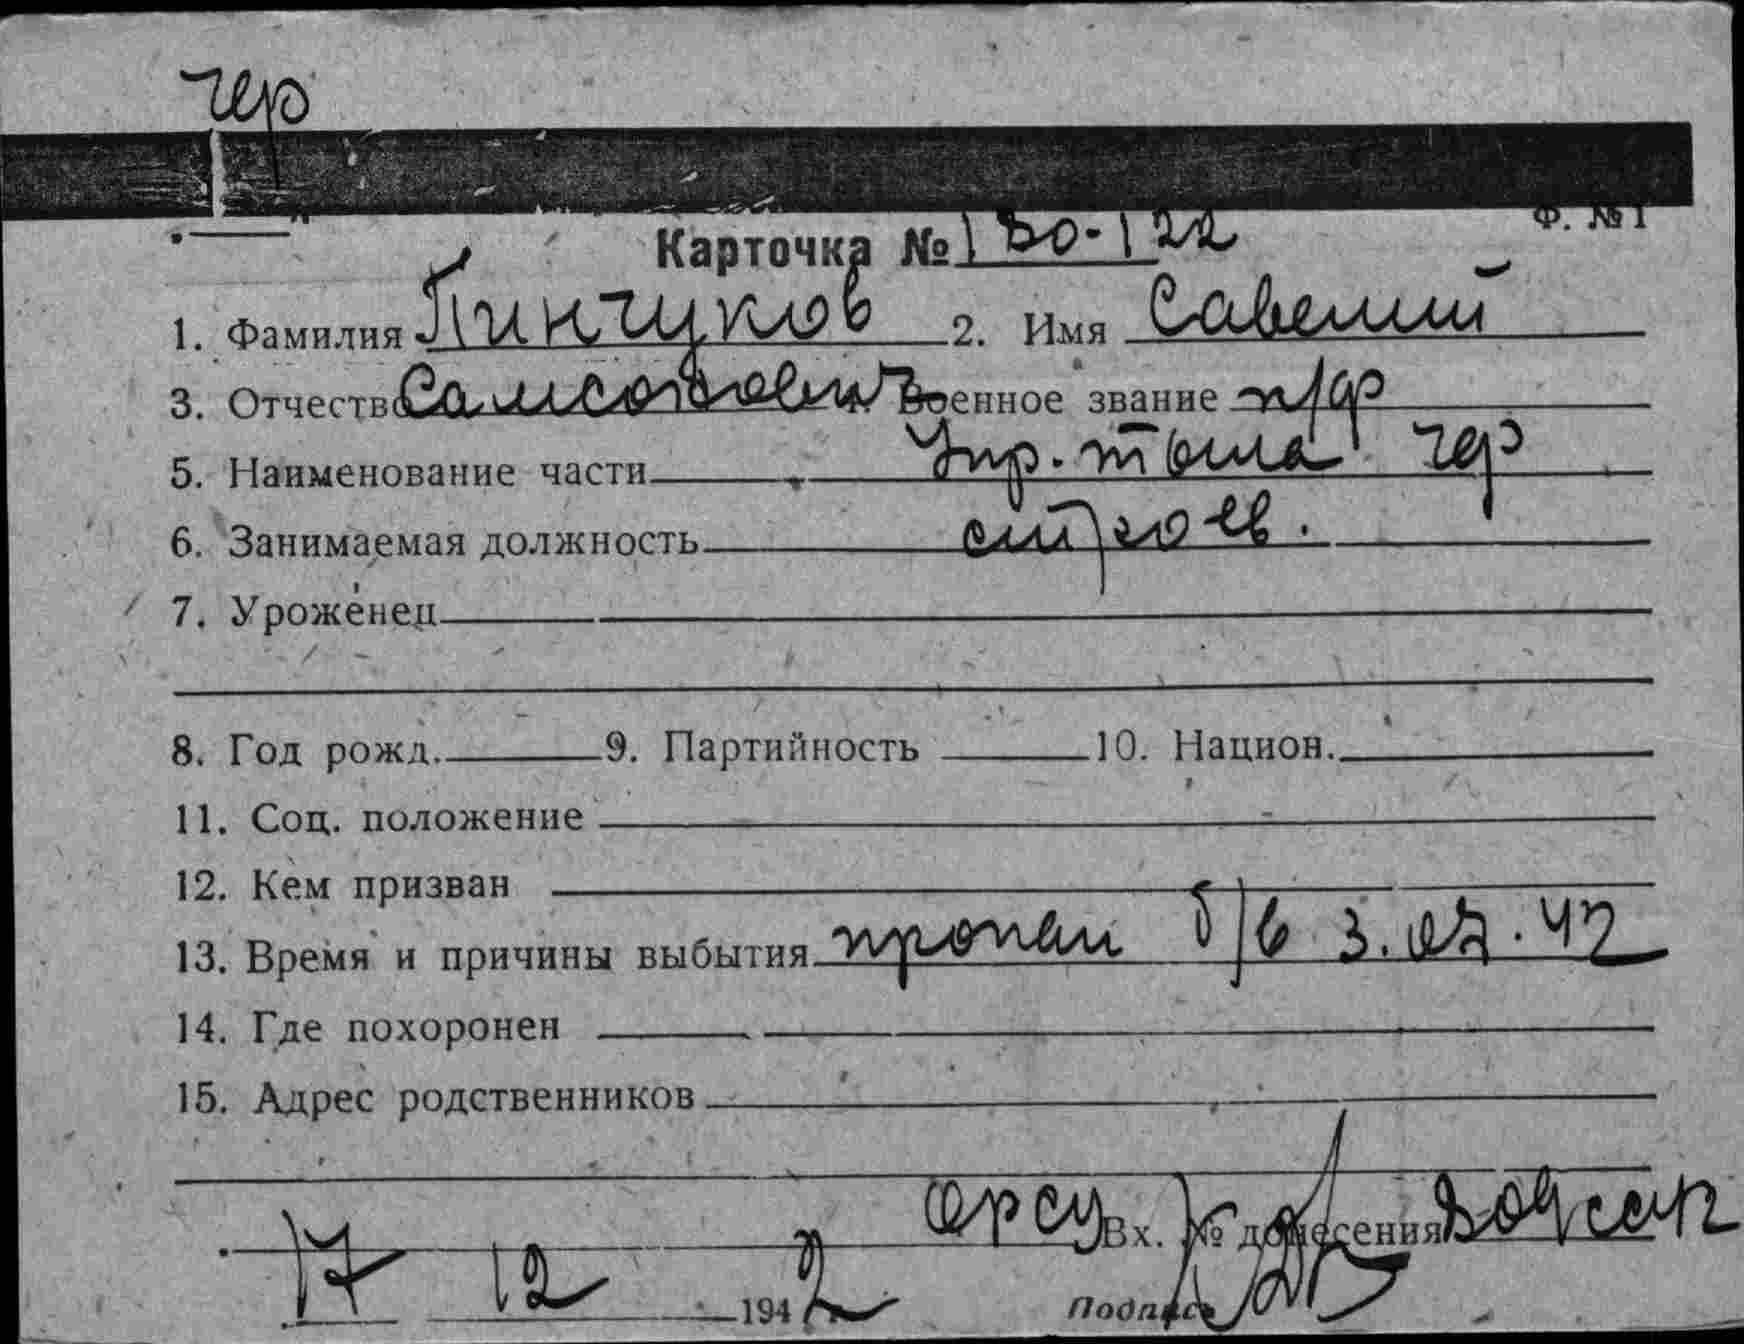 чер
Ф. № 1
Карточка № 180-122
1. Фамилия Пинчуков 2. Имя Савелий
3. Отчество Самсонович Военное звание п/ф
5. Наименование части Упр. тыла чер
6. Занимаемая должность
7. Уроженец
8. Год рожд. 9. Партийность 10. Национ.
11. Соц. положение
12. Кем призван
13. Время и причины выбытия пропал б/в 3.07.42
14. Где похоронен
15. Адрес родственников
Вх. № донесения
17 12 1942
Подпись